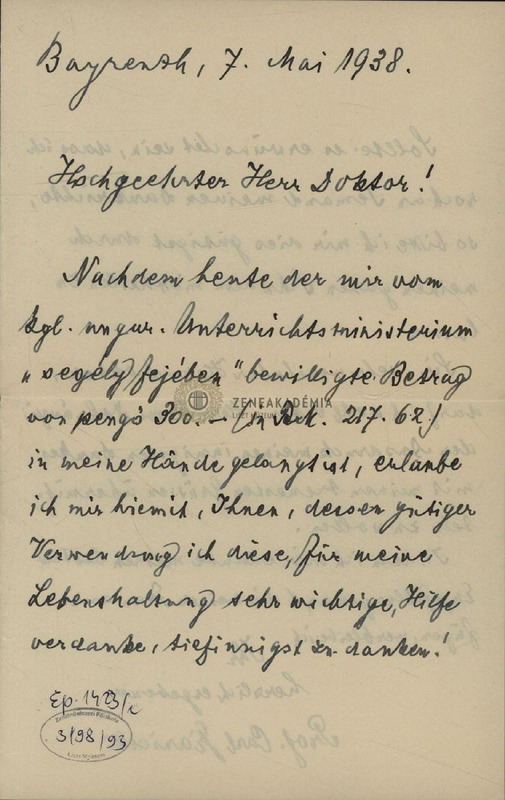 Bayreuth, 7. Mai 1938.
Hochgeehrter Herr Doktor!
Nachdem heute der mir vom
kgl. ungar. Unterrichtsministerium
„segély fejében" bewilligte Betrag
von pengö 300.– (in RM. 217.62)
in meine Hände gelangt ist, erlaube
ich mir hiemit, Ihnen, dessen gütiger
Verwendung ich diese, für meine
Lebenshaltung sehr wichtige, Hilfe
verdanke, tiefinnigst zu danken!
ZENEAKADÉMIA
LISZT MÚZEUM
Ep. 1423/
3/98/93